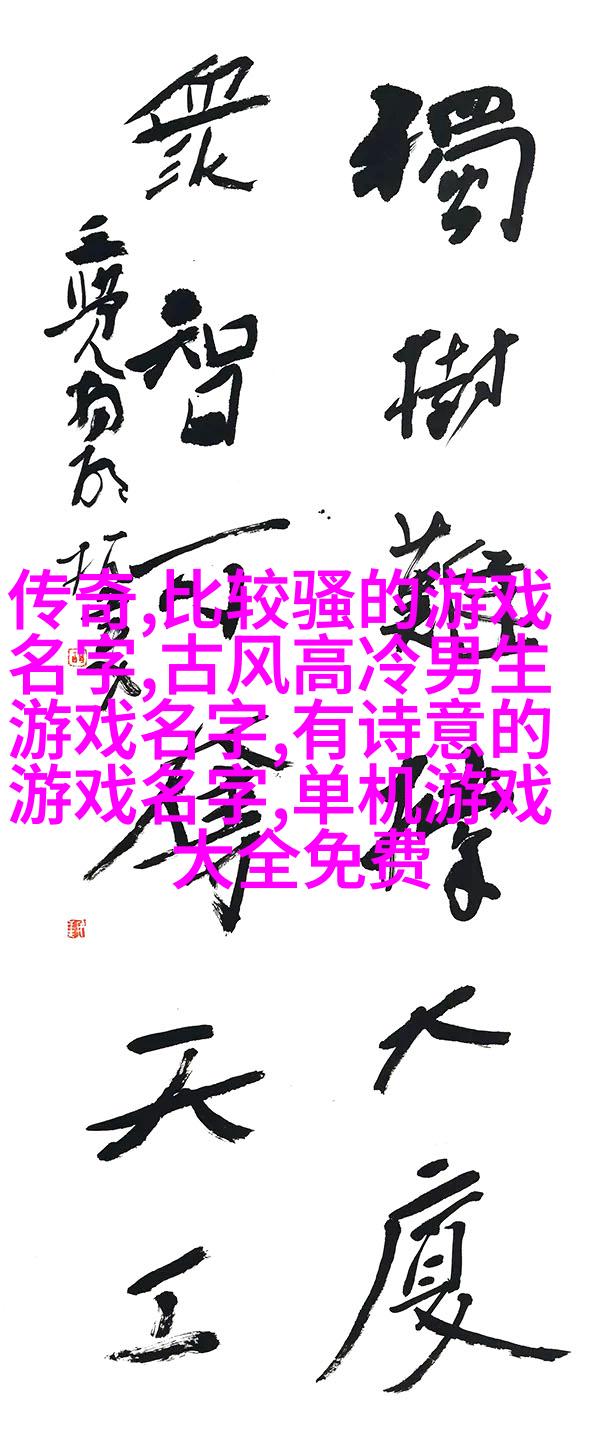 獨樹難撐大廈
衆智可奪天工
传奇,比较骚的游戏
名字,古风高冷男生
游戏名字,有诗意的
游戏名字,单机游戏
大全免费